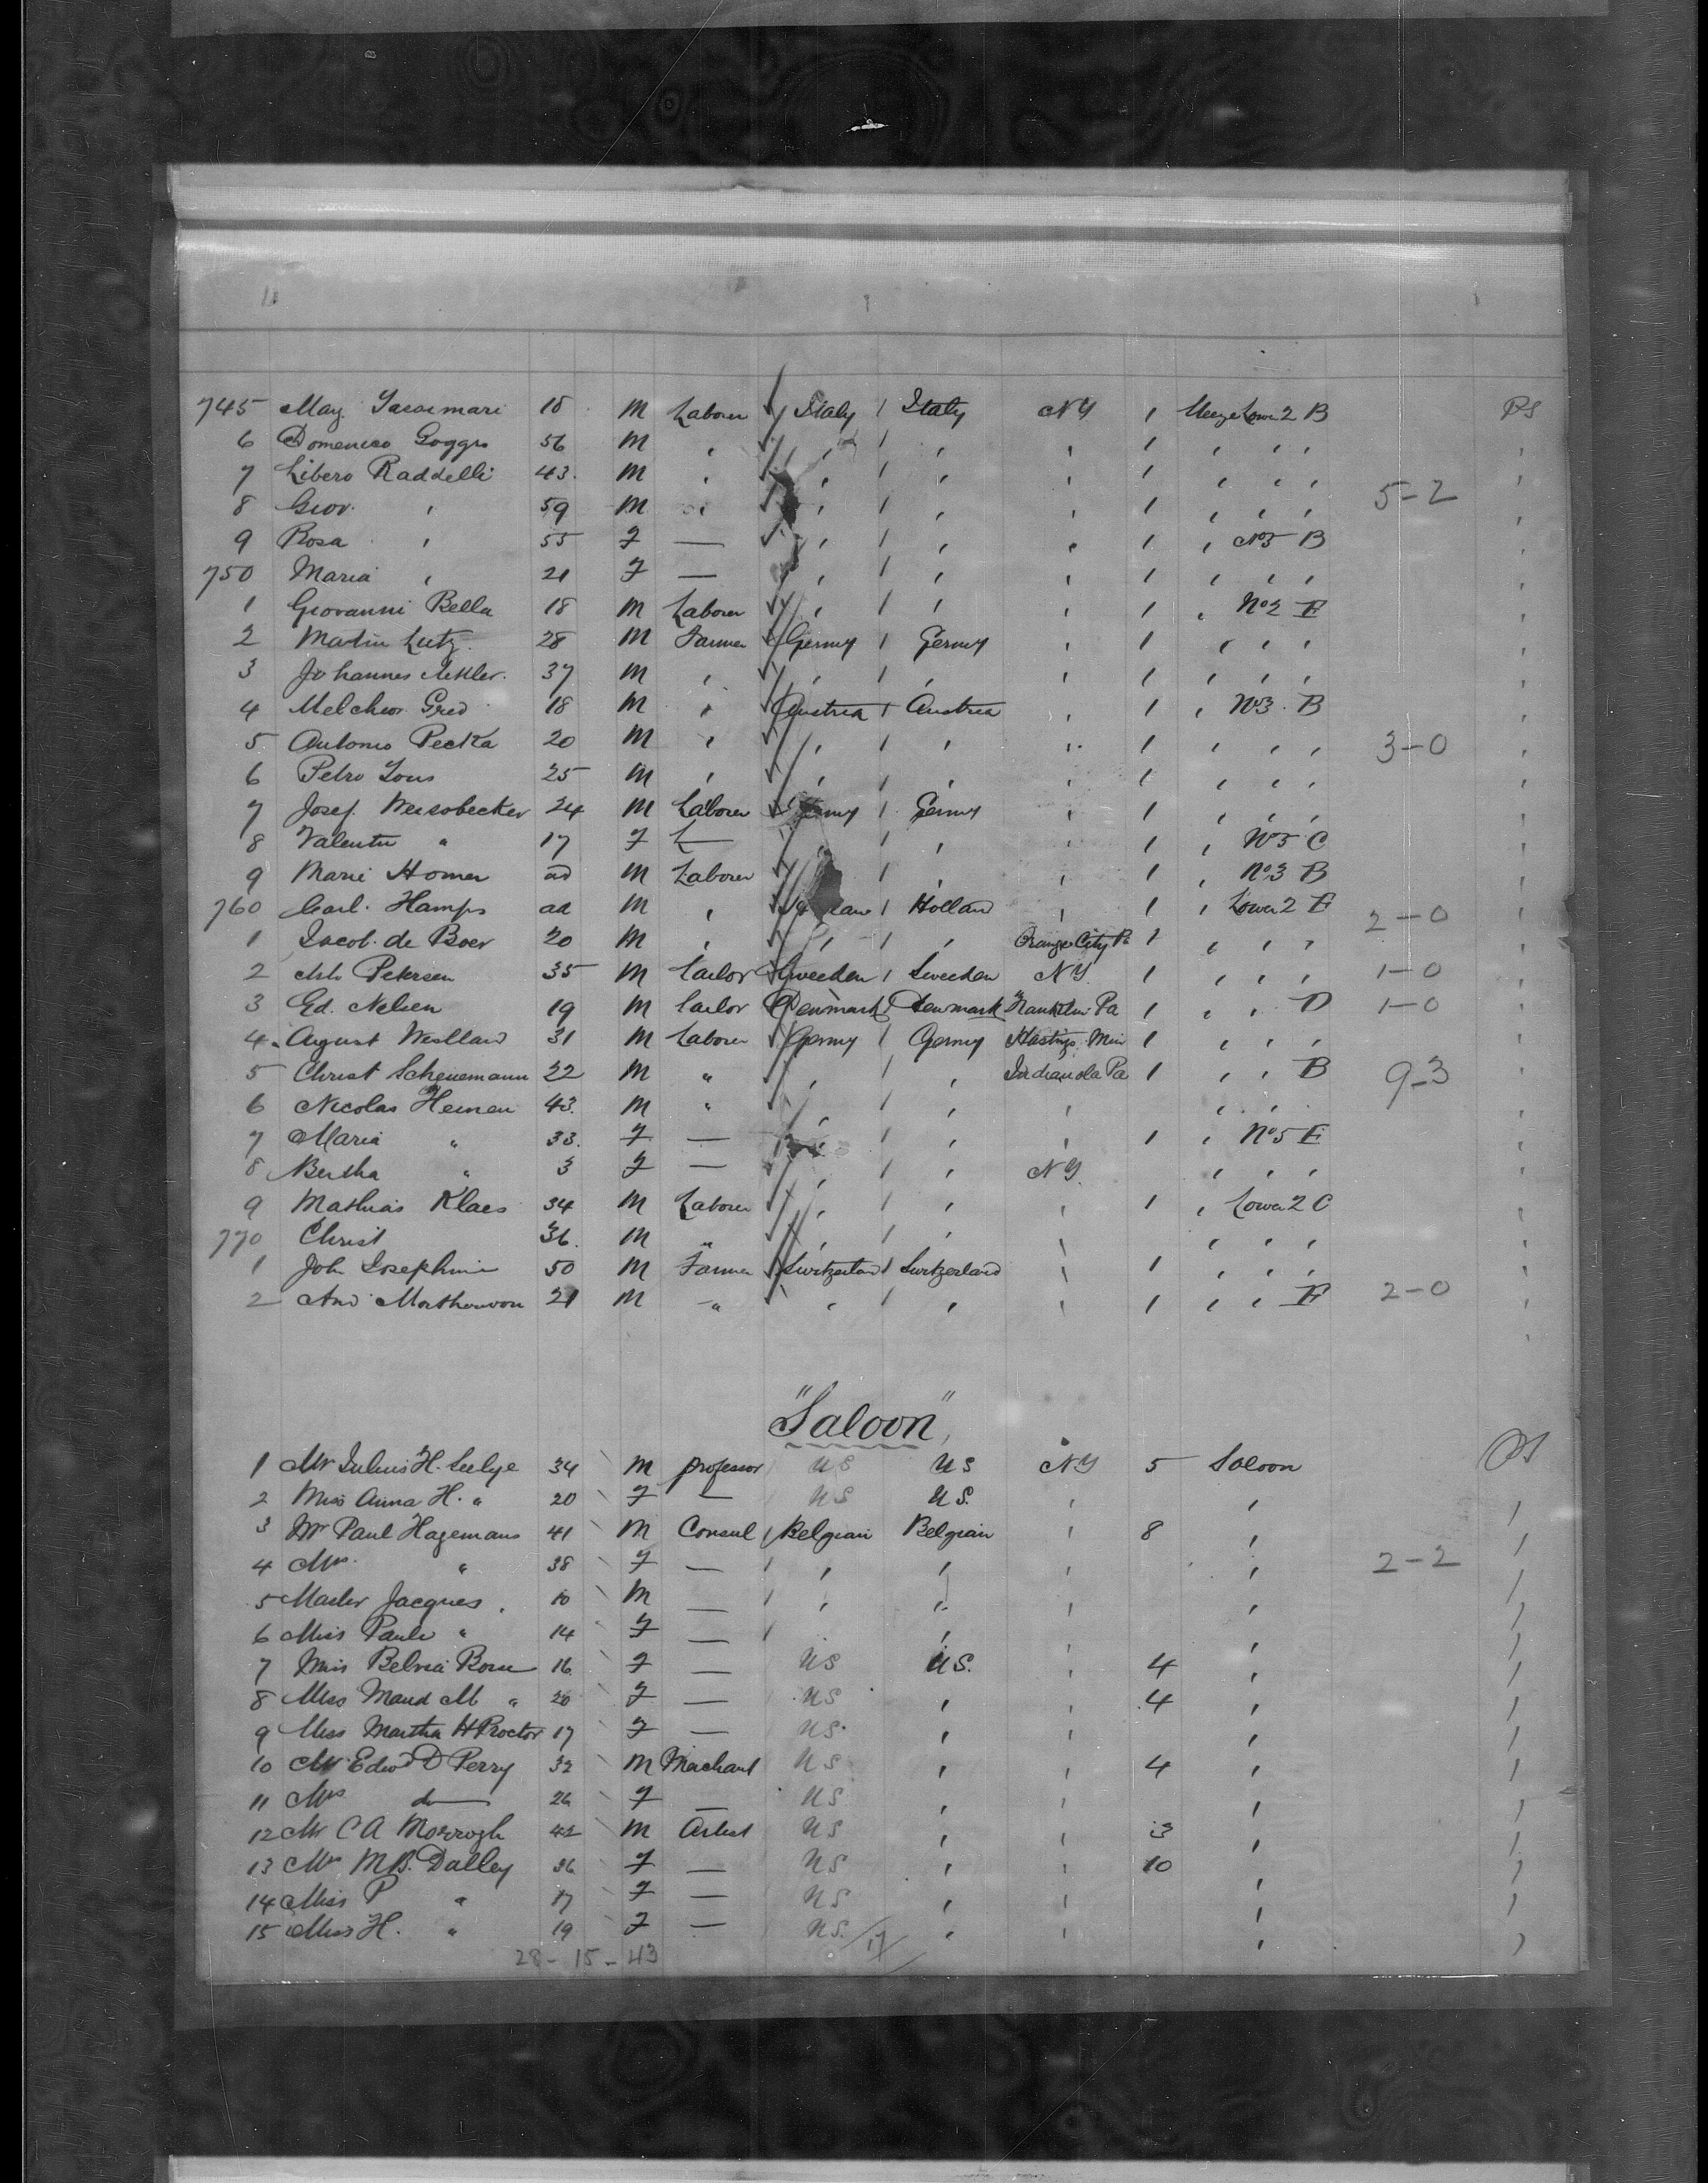 745 May 18 M Laborer Italy Italy NY 1 Lower 2 B PS
6 Domenico Goggro 56 M , , , , 1 , , ,
7 Libero Raddelli 43. M , , , , 1 , , ,
8 Giov. , 59 M , , , , 1 , , , 5-2
9 Rosa , 55 F — , , , 1 , No5 B
750 Maria , 21 F — , , , 1 , , ,
1 Giovanni Bella 18 M Laborer , , , 1 , No2 E
2 Martin Lutz. 28 M Farmer Germy Germy , 1 , , ,
3 Johannes 37 M , , , , 1 , , ,
4 Melchior Gred 18 M , Austria Austria , 1 , No3 B
5 Antonio Pecka 20 M , , , , 1 , , , 3-0
6 Petro 25 M , , , , 1 , , ,
7 Josef Weissbecker 24 M Laborer Germy Germy , 1 , , ,
8 Valentin " 17 F — , , 1 , No5 C
9 Marie Homen ad M Laborer , , 1 , No3 B
760 Carl. Hamps ad M , Holland , 1 , Lower 2 E 2-0
1 Jacob de Boer 20 M , , , Orange City 1 , , ,
2 Petersen 35 M tailor Sweeden Sweeden NY 1 , , , 1-0
3 Ed. Nelsen 19 M tailor Denmark Denmark Franklin Pa 1 , , D 1-0
4 August Westland 31 M Laborer Germy Germy Hastings Min 1 , , ,
5 Christ Scheuemann 22 M " , , Indianola Pa 1 , , B 9-3
6 Nicolas Heinen 43. M " , , , , ,
7 Maria " 33. F — , , , 1 , No5 E
8 Bertha " 3 F — , , NY. , , ,
9 Mathias Klaes 34 M Laborer , , , 1 , Lower 2 C
770 Christ 36. M " , , , , , ,
1 Joh Josephine 50 M Farmer Switzerland Switzerland , 1 , , ,
2 And 21 M " , , , 1 , , E 2-0
"Saloon"
1 Mr Julius H. Seelye 34 M professor US US NY 5 Saloon PS
2 Miss Anna H. " 20 F — US US. , ,
3 Mr Paul Hagemans 41 M Consul Belgian Belgian , 8 ,
4 Mrs. " 38 F — , , , , 2-2
5 Master Jacques , 10 M — , , , ,
6 Miss Paule " 14 F — , ,
7 Miss Born 16 F — US US. , 4 ,
8 Miss Maud M " 20 F — US , , 4 ,
9 Miss Martha H Proctor 17 F — US. , , ,
10 Mr Edwd D Perry 32 M Merchant US , , 4 ,
11 Mrs do 26 F — US , , ,
12 Mr C A Morrogh 42 M Artist US , , 3 ,
13 Mrs M.B. Dalley 36 F — US , , 10
14 Miss P " 17 F — US , , ,
15 Miss H. " 19 F — US. , , ,
28 - 15 - 43 17